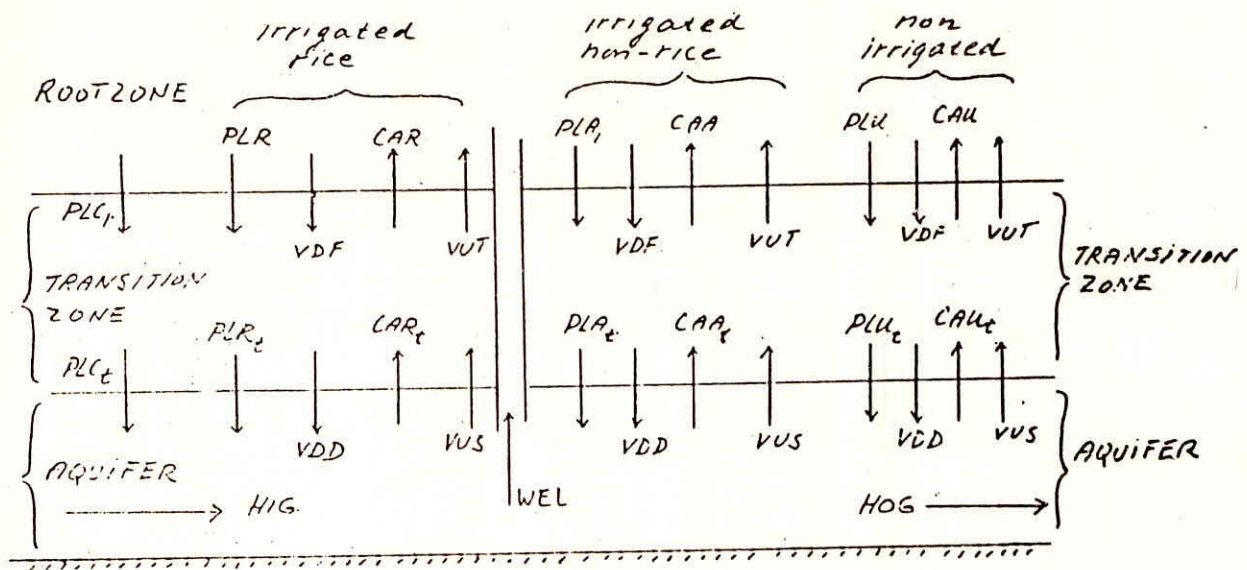 irrigated rice
irrigated non-rice
non irrigated
ROOTZONE
PLR CAR PLA₁ CAA PLU CAU
PLC₁
VDF VUT VDF VUT VDF VUT
TRANSITION ZONE
TRANSITION ZONE
PLRₜ CARₜ PLAₜ CAAₜ PLUₜ CAUₜ
PLCₜ
VDD VUS VDD VUS VDD VUS
AQUIFER
AQUIFER
HIG. WEL HOG